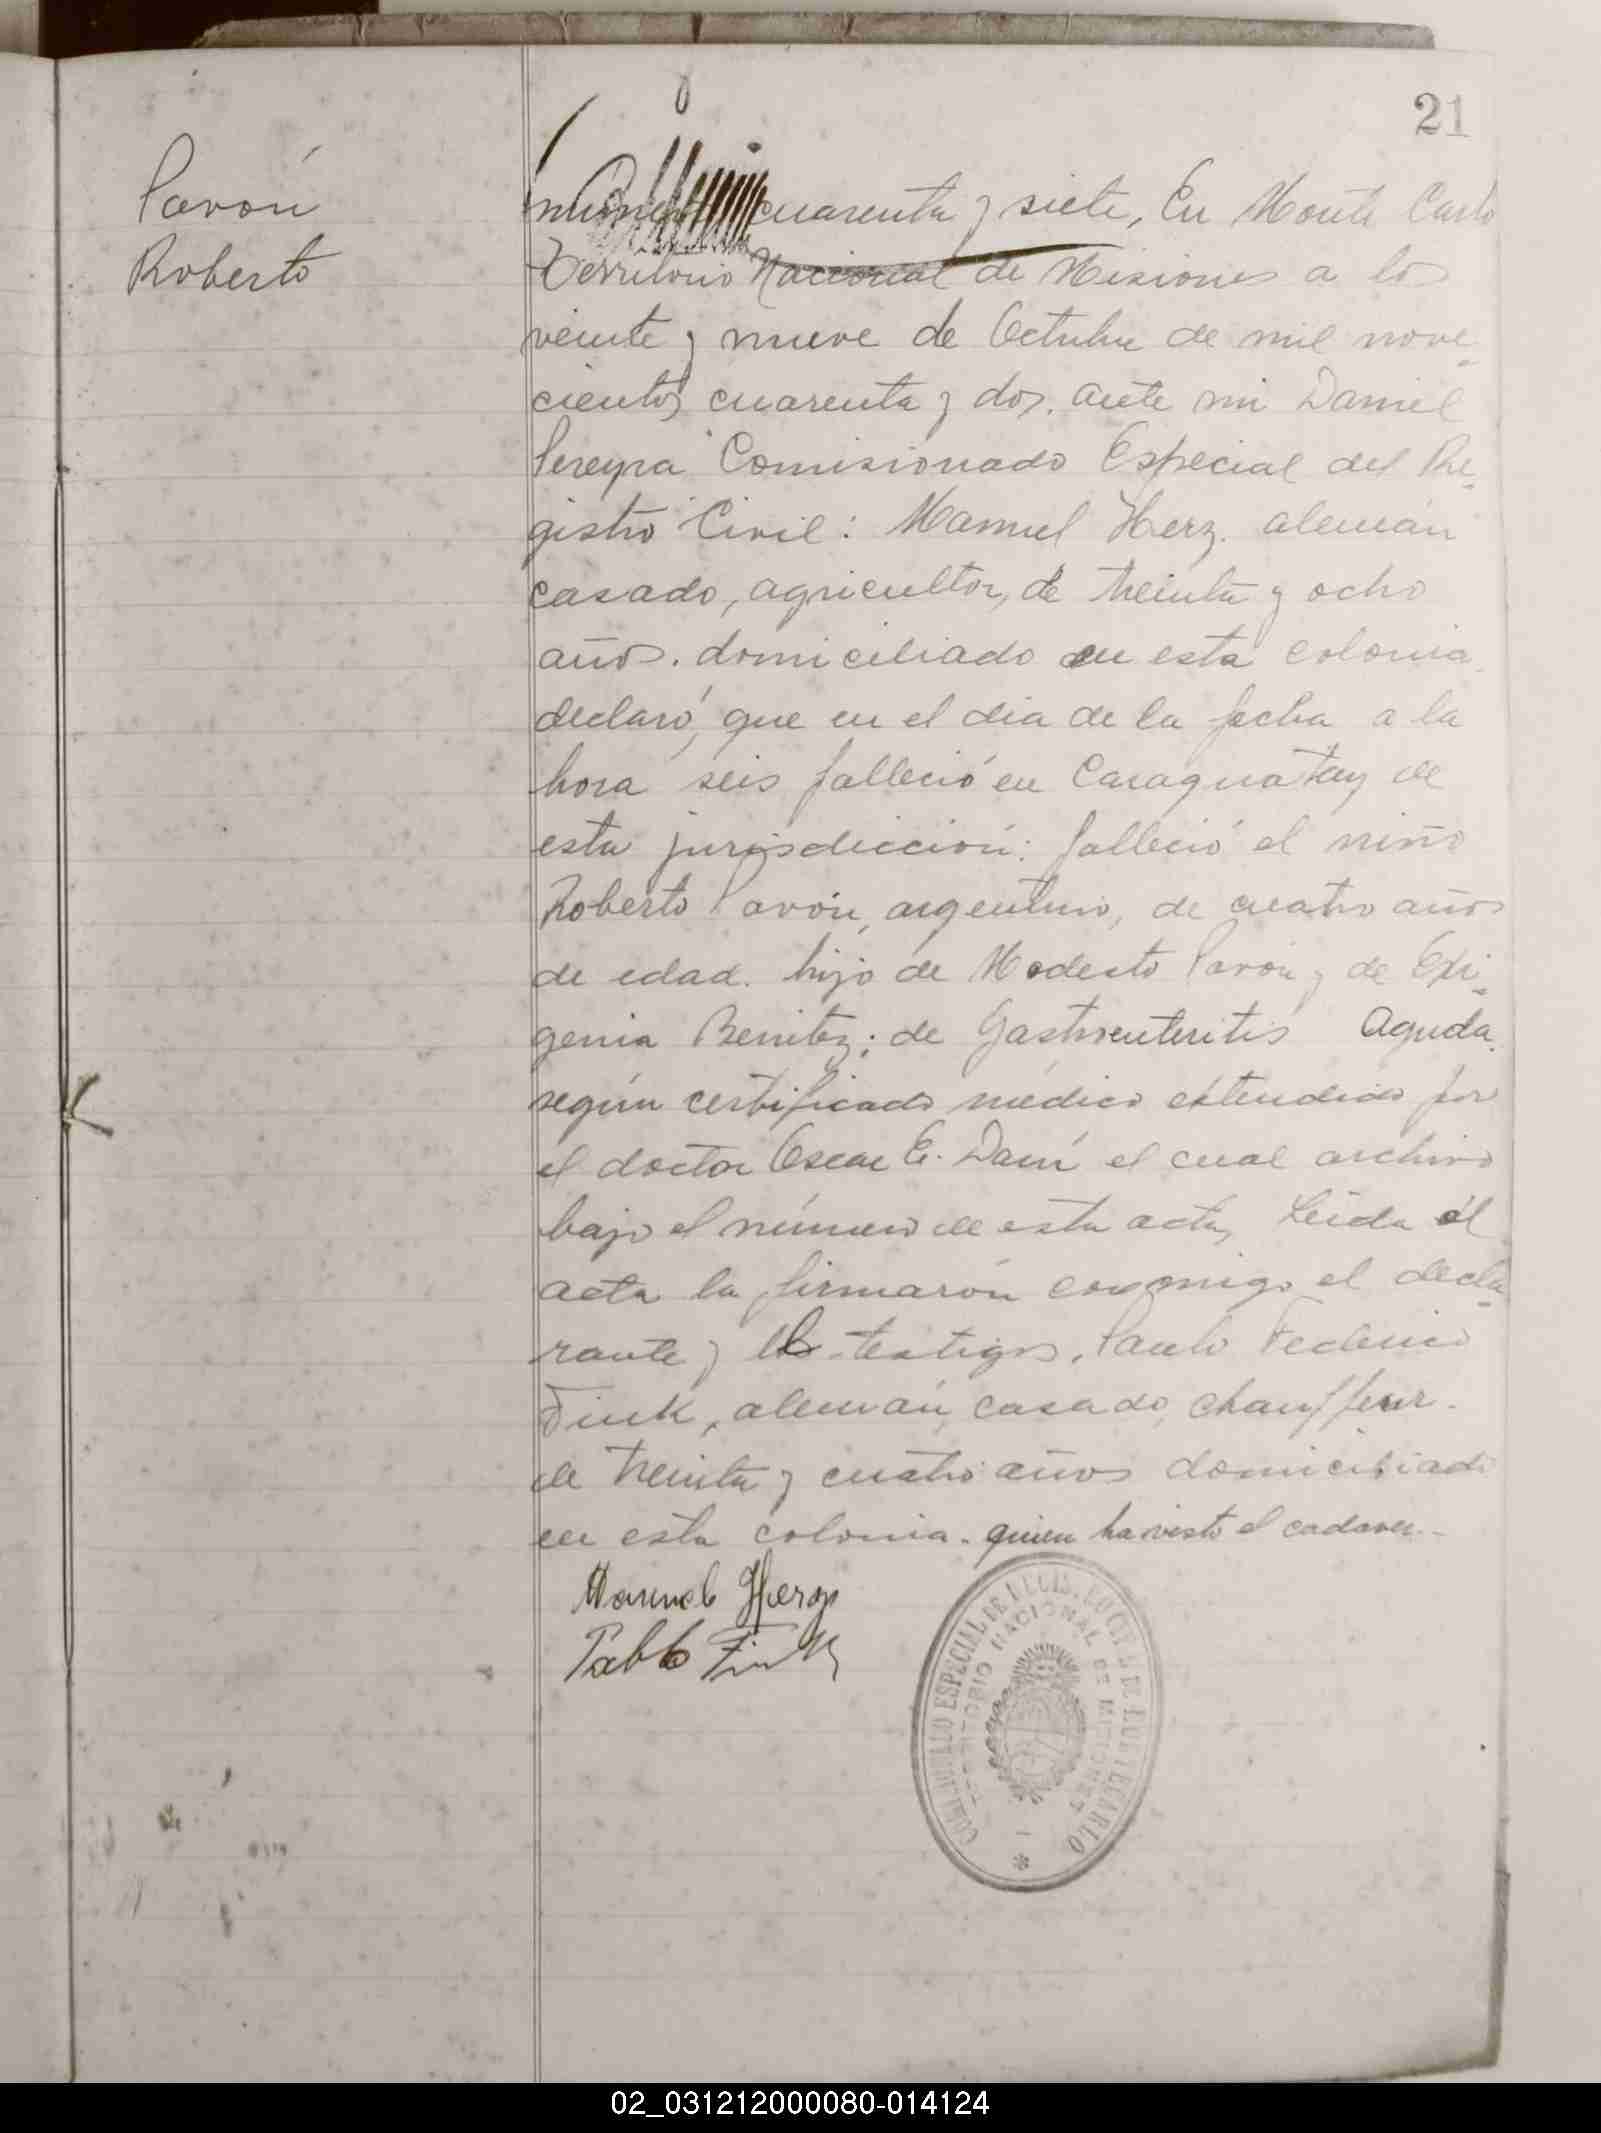 21
Pavón
Roberto
número cuarenta y siete, En Monte Carlo
Territorio Nacional de Misiones a los
veinte y nueve de Octubre de mil nove-
cientos cuarenta y dos. ante mi Daniel
Pereyra Comisionado Especial del Re-
gistro Civil: Manuel Herz. alemán
casado, agricultor, de treinta y ocho
años. domiciliado en esta colonia
declaró, que en el dia de la fecha a la
hora seis falleció en Caraguatay de
esta jurisdicción: falleció el niño
Roberto Pavón, argentino, de cuatro años
de edad. hijo de Modesto Pavón y de Efi-
genia Benitez; de Gastroenteritis Aguda.
según certificado médico extendido por
el doctor Oscar E. Darú el cual archivo
bajo el número de esta acta, Leida el
acta la firmarón conmigo el decla-
rante y los testigos, Paulo Federico
Fink, alemán, casado, chauffeur.
de treinta y cuatro años domiciliado
en esta colonia. quien ha visto el cadaver.-
Manuel Herz
Pablo Fink
ESPECIAL DE
MONTECARLO
TERRITORIO NACIONAL DE MISIONES
02_031212000080-014124